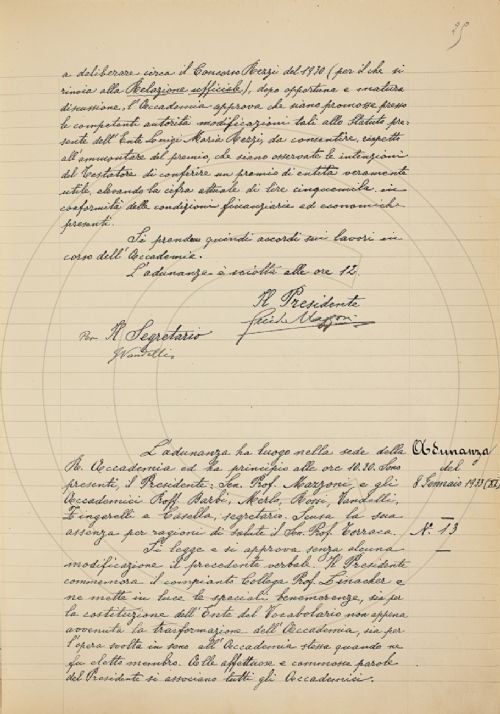 29
a deliberare circa il Concorso Rezzi del 1930 (per il che si
rinvia alla Relazione ufficiale), dopo opportuna e matura
discussione, l'Accademia approva che siano promosse presso
le competenti autorità modificazioni tali allo Statuto pre-
sente dell'Ente Luigi Maria Rezzi, da consentire, rispetto
all'ammontare del premio, che siano osservate le intenzioni
del Testatore di conferire un premio di entità veramente
utile, elevando la cifra attuale di lire cinquemila, in
conformità delle condizioni finanziarie ed economiche
presenti.
Si prendono quindi accordi sui lavori in
corso dell'Accademia.
L'adunanza è sciolta alle ore 12.
Il Presidente
Guido Mazzoni
Per Il Segretario
GVandelli
L'adunanza ha luogo nella sede della
R. Accademia ed ha principio alle ore 10.30. Sono
presenti, il Presidente: Sen. Prof. Mazzoni, e gli
Accademici Proff. Barbi, Merlo, Rossi, Vandelli,
Zingarelli e Casella, segretario. Scusa la sua
assenza per ragioni di salute il Sen. Prof. Torraca.
Adunanza
del
8 Gennaio 1933 (XI)
N. 13
Si legge e si approva senza alcuna
modificazione il precedente verbale. Il Presidente
commemora il compianto Collega Prof. Linacher e
ne mette in luce le speciali benemerenze, sia per
la costituzione dell'Ente del Vocabolario non appena
avvenuta la trasformazione dell'Accademia, sia per
l'opera svolta in seno all'Accademia stessa quando ne
fu eletto membro. Alle affettuose e commosse parole
del Presidente si associano tutti gli Accademici.